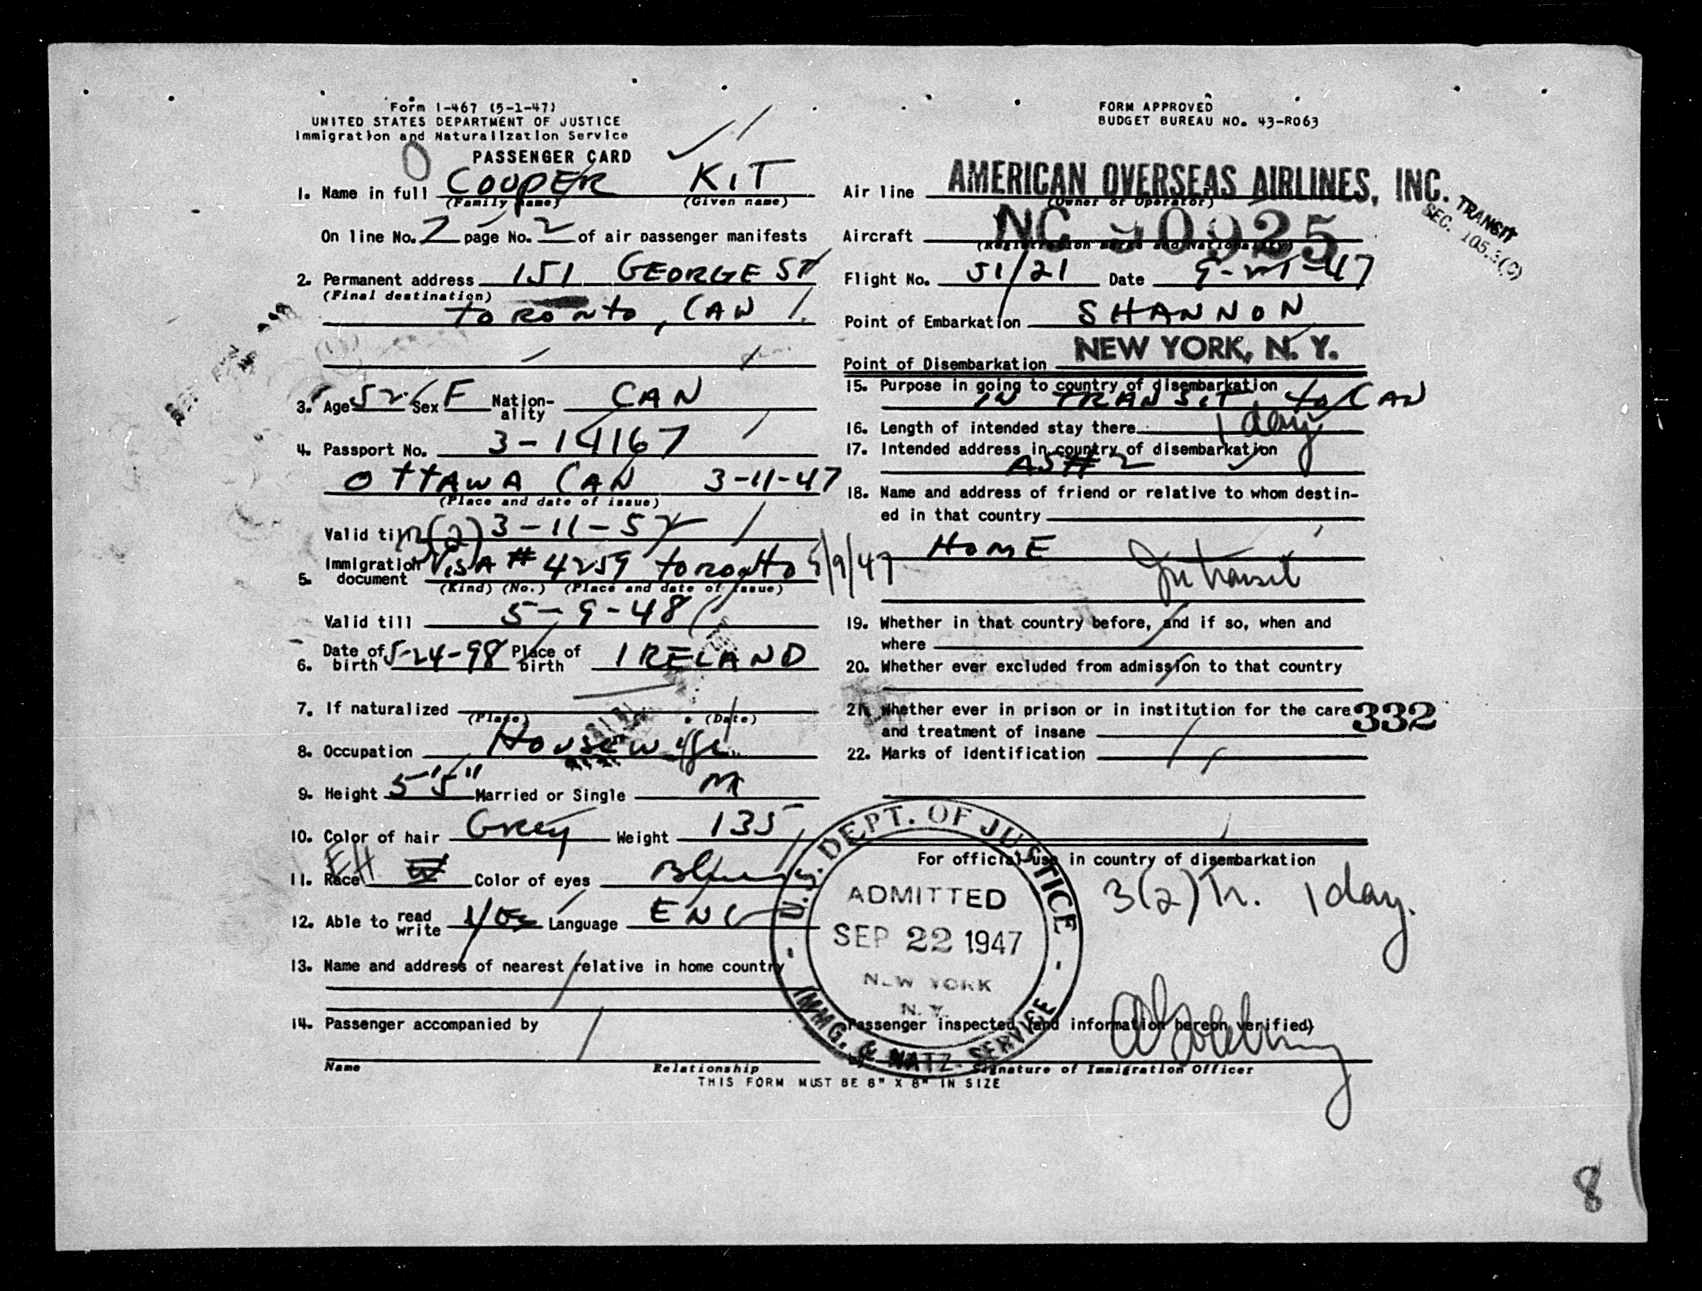 Form I-467 (5-1-47)
UNITED STATES DEPARTMENT OF JUSTICE
Immigration and Naturalization Service
PASSENGER CARD
FORM APPROVED
BUDGET BUREAU NO. 43-R063
1. Name in full COOPER KIT
(Family name) (Given name)
On line No. 2 page No. 2 of air passenger manifests
2. Permanent address 151 GEORGE ST
(Final destination)
TORONTO, CAN
3. Age 52 Sex F Nation-ality CAN
4. Passport No. 3-14167
OTTAWA CAN 3-11-47
(Place and date of issue)
Valid till 3-11-52
3(2)
5. Immigration document VISA # 4259 TORONTO 5/9/47
(Kind) (No.) (Place and date of issue)
Valid till 5-9-48
6. Date of birth 5-24-98 Place of birth IRELAND
7. If naturalized
(Place) (Date)
8. Occupation Housewife
9. Height 5'5" Married or Single M
10. Color of hair Grey Weight 135
11. Race EH Color of eyes Blue
12. Able to read write Yes Language ENG
13. Name and address of nearest relative in home country
14. Passenger accompanied by
Name Relationship
THIS FORM MUST BE 8" X 8" IN SIZE
Air line AMERICAN OVERSEAS AIRLINES, INC.
(Owner or Operator)
TRANSIT
SEC. 105.3(C)
Aircraft NC 90925
(Registration marks and Nationality)
Flight No. 51/21 Date 9-21-47
Point of Embarkation SHANNON
Point of Disembarkation NEW YORK, N. Y.
15. Purpose in going to country of disembarkation
IN TRANSIT to CAN
16. Length of intended stay there 1 day
17. Intended address in country of disembarkation
AS # 2
18. Name and address of friend or relative to whom destin-
ed in that country
HOME
In transit
19. Whether in that country before, and if so, when and
where
20. Whether ever excluded from admission to that country
21. Whether ever in prison or in institution for the care
and treatment of insane
332
22. Marks of identification
For official use in country of disembarkation
3(2) Tr. 1 day.
U.S. DEPT. OF JUSTICE
ADMITTED
SEP 22 1947
NEW YORK
N. Y.
IMMG. & NATZ. SERVICE
Passenger inspected (and information hereon verified)
Signature of Immigration Officer
8